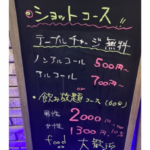 ショットコース
テーブルチャージ無料
ノンアルコール 500円〜
アルコール 700円〜
飲み放題コース(60分)
男性 2000
女性 1300円
food 大歓迎